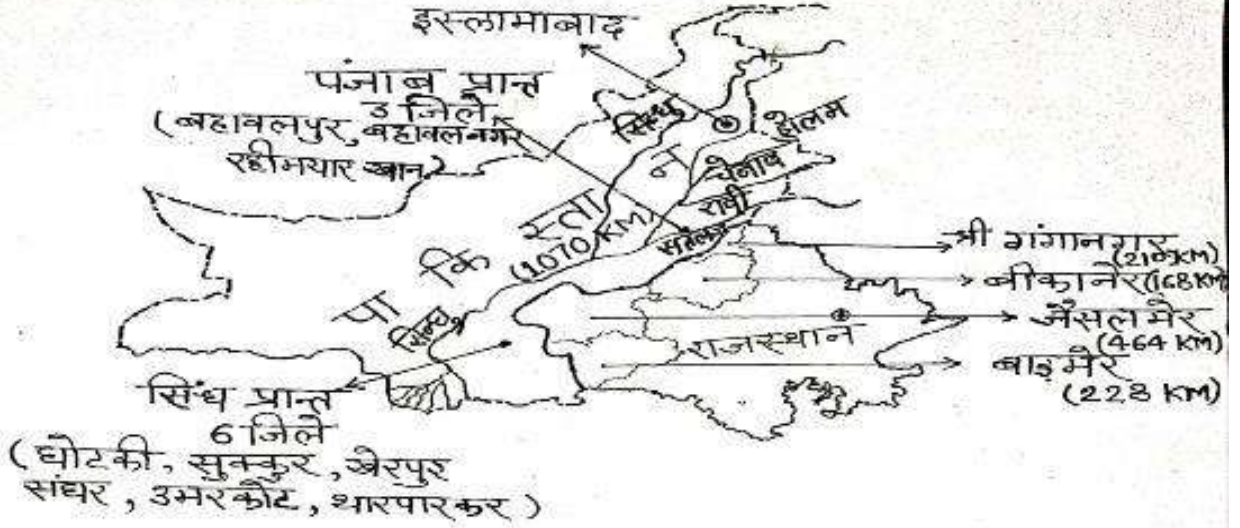 इस्लामाबाद
पंजाब प्रान्त
3 जिले
(बहावलपुर, बहावलनगर
रहीमयार खान)
सिन्धु
झेलम
चेनाब
रावी
सतलज
पा कि स्ता न
(1070 KM)
सिन्धु
श्री गंगानगर
बीकानेर (168 KM)
जैसलमेर
(464 KM)
बाड़मेर
(228 KM)
राजस्थान
सिंध प्रान्त
6 जिले
(घोटकी, सुक्कुर, खेरपुर
संघर, उमरकोट, थारपारकर)